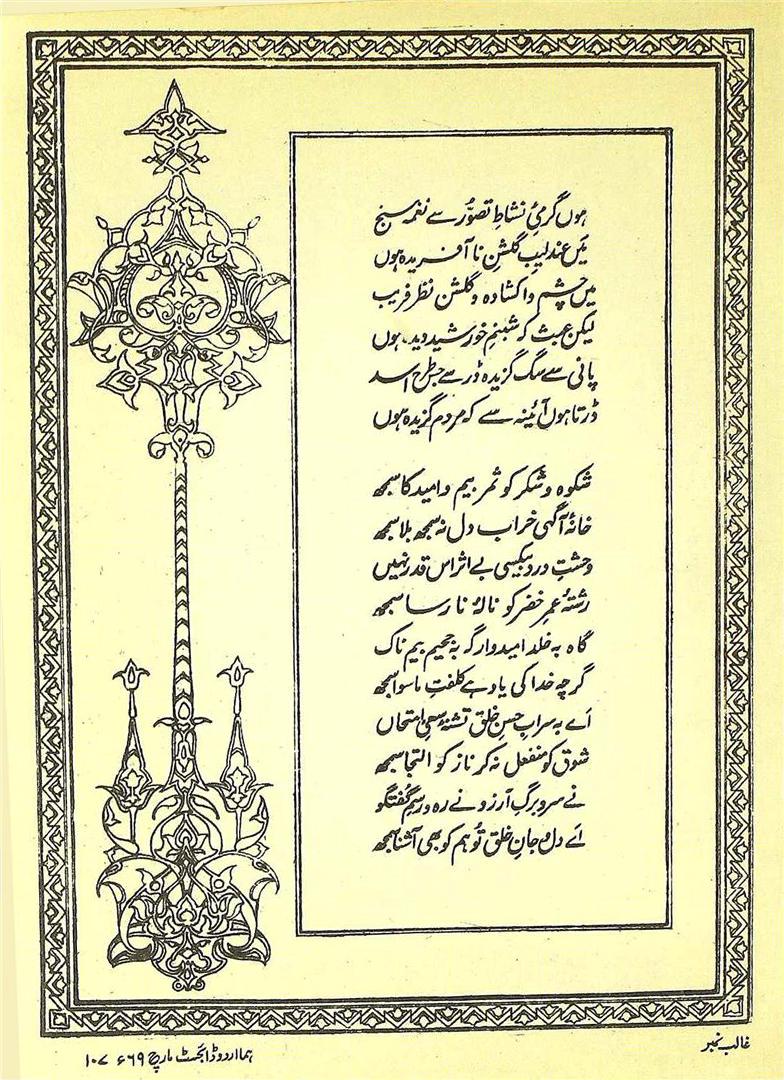 ہوں گرمیٔ نشاطِ تصوّر سے نغمہ سنج
میں عندلیبِ گلشنِ نا آفریدہ ہوں
میں چشم وا کشادہ و گلشن نظر فریب
لیکن عبث کہ شبنمِ خورشید دیدہ ہوں
پانی سے سگ گزیدہ ڈرے جس طرح اسد
ڈرتا ہوں آئینہ سے کہ مردم گزیدہ ہوں
شکوہ و شکر کو ثمر بیم و امید کا سمجھ
خانۂ آگہی خراب دل نہ سمجھ بلا سمجھ
وحشتِ دردِ بیکسی بے اثر اس قدر نہیں
رشتۂ عمرِ خضر کو نالۂ نا رسا سمجھ
گاہ بہ خلد امیدوار گہ بہ جحیم بیم ناک
گرچہ خدا کی یاد ہے کلفتِ ماسوا سمجھ
اَے بہ سرابِ حسنِ خلق تشنۂ سعیِ امتحاں
شوق کو منفعل نہ کر ناز کو التجا سمجھ
نے سرو برگِ آرزو نے رہ و رسمِ گفتگو
اَے دل و جانِ خلق تُو ہم کو بھی آشنا سمجھ
غالب نمبر
ہما اردو ڈائجسٹ مارچ ۶۹ء ۱۰۷